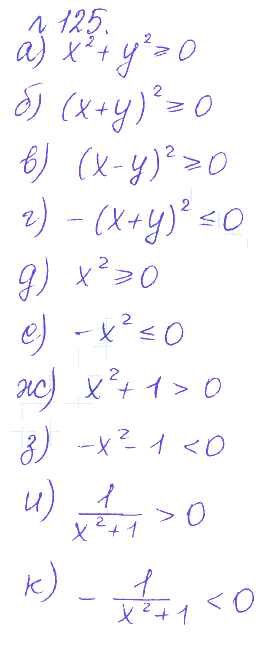 № 125.
а) x² + y² ≥ 0
б) (x+y)² ≥ 0
в) (x-y)² ≥ 0
г) -(x+y)² ≤ 0
д) x² ≥ 0
е) -x² ≤ 0
ж) x² + 1 > 0
з) -x² - 1 < 0
и) 1/(x²+1) > 0
к) - 1/(x²+1) < 0